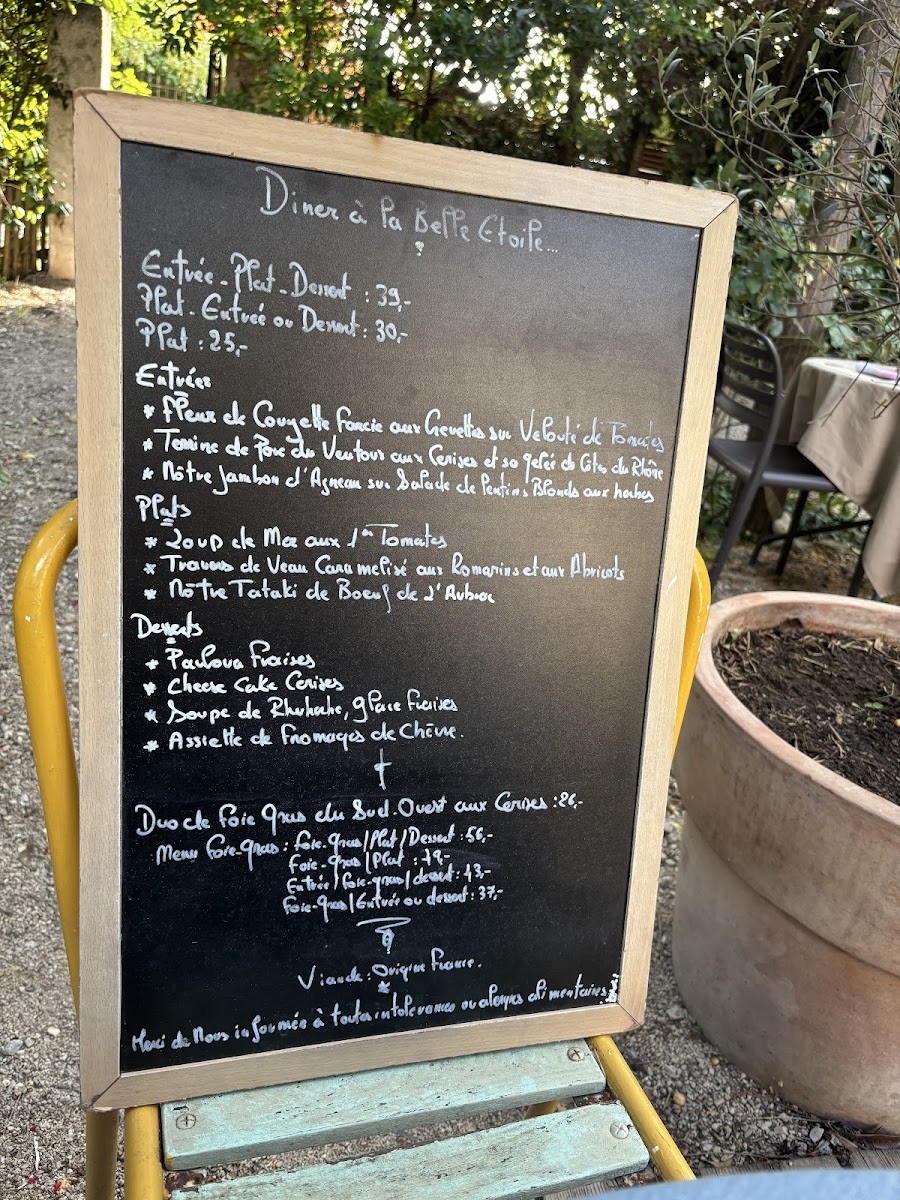 Diner à la Belle Etoile...
Entrée - Plat - Dessert : 39,-
Plat - Entrée ou Dessert : 30,-
Plat : 25,-
Entrées
* Fleur de Courgette Farcie aux Crevettes sur Velouté de Tomates
* Terrine de Porc du Ventoux aux Cerises et sa gelée de Côtes du Rhône
* Nôtre Jambon d'Agneau sur Salade de Lentins Blonds aux herbes
Plats
* Loup de Mer aux 1ères Tomates
* Travers de Veau Caramelisé aux Romarins et aux Abricots
* Nôtre Tataki de Boeuf de l'Aubrac
Desserts
* Pavlova Fraises
* Cheese Cake Cerises
* Soupe de Rhubarbe, glace Fraises
* Assiette de Fromages de Chèvre.
Duo de Foie Gras du Sud-Ouest aux Cerises : 26,-
Menu Foie-gras : Foie-gras / Plat / Dessert : 56,-
Foie-gras / Plat : 49,-
Entrée / Foie-gras / dessert : 43,-
Foie-gras / Entrée ou dessert : 37,-
Viande : Origine France.
Merci de Nous informer à toutes intolérances ou alergies alimentaires